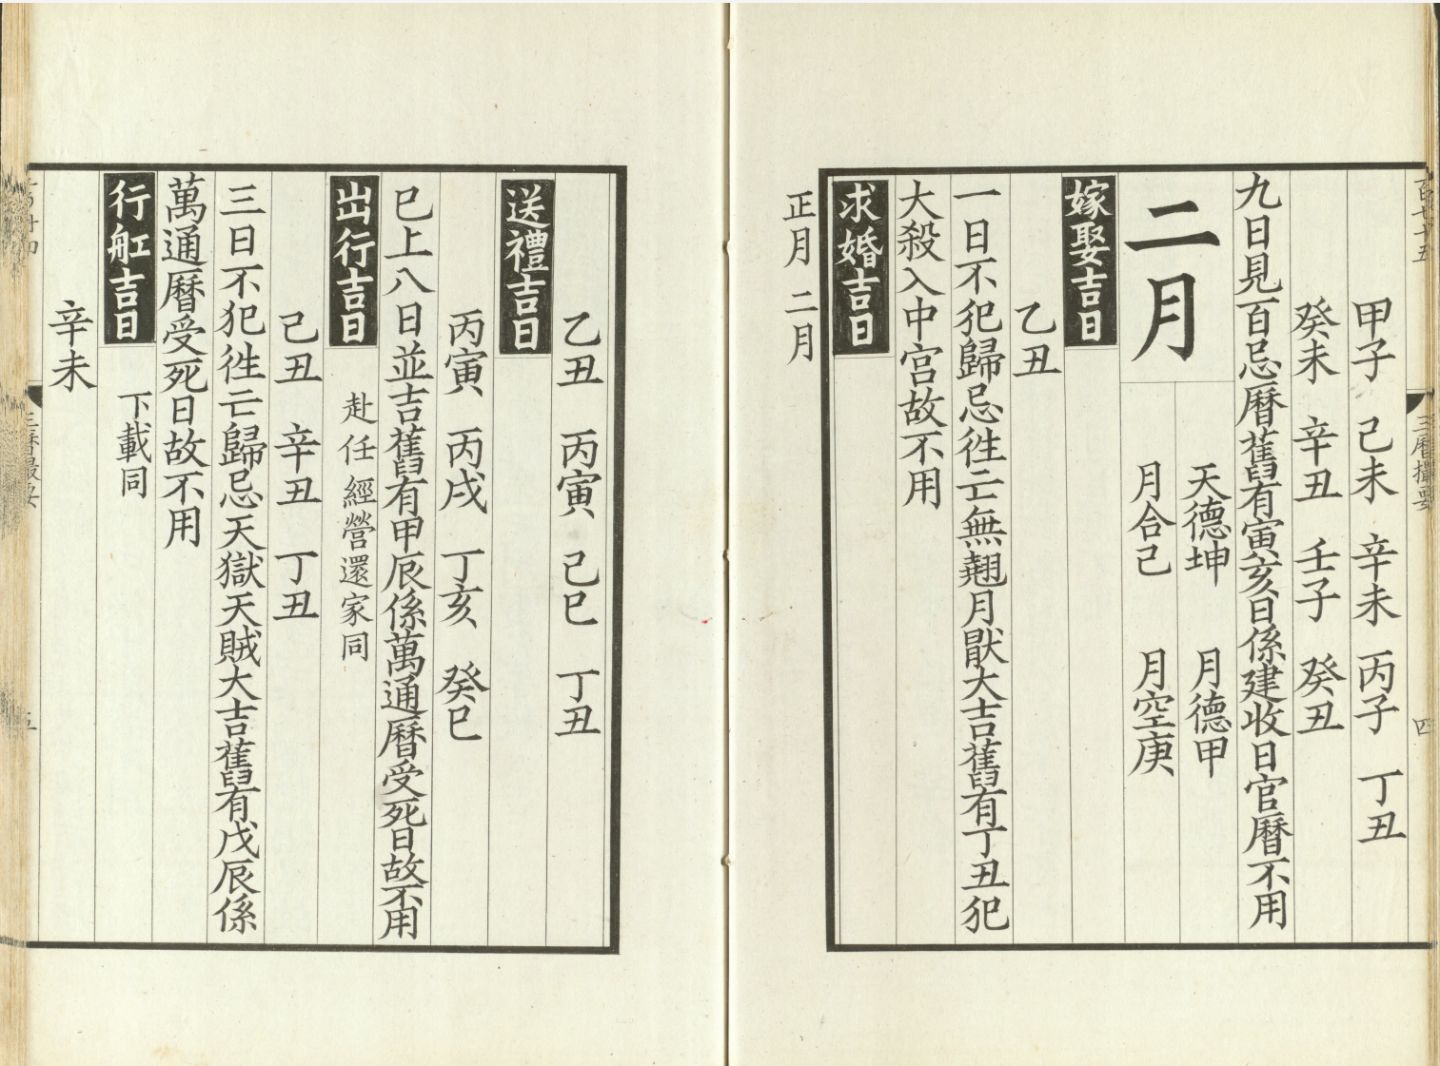 甲子 己未 辛未 丙子 丁丑
癸未 辛丑 壬子 癸丑
九日見百忌曆舊有寅亥日係建收日官曆不用
二月
天德坤 月德甲
月合己 月空庚
嫁娶吉日
乙丑
一日不犯歸忌徃亡無翹月厭大吉舊有丁丑犯
大殺入中宫故不用
求婚吉日
正月 二月
三曆撮要
四
乙丑 丙寅 己巳 丁丑
送禮吉日
丙寅 丙戌 丁亥 癸巳
巳上八日並吉舊有甲辰係萬通曆受死日故不用
出行吉日 赴任經營還家同
己丑 辛丑 丁丑
三日不犯徃亡歸忌天獄天賊大吉舊有戊辰係
萬通曆受死日故不用
行舡吉日 下載同
辛未